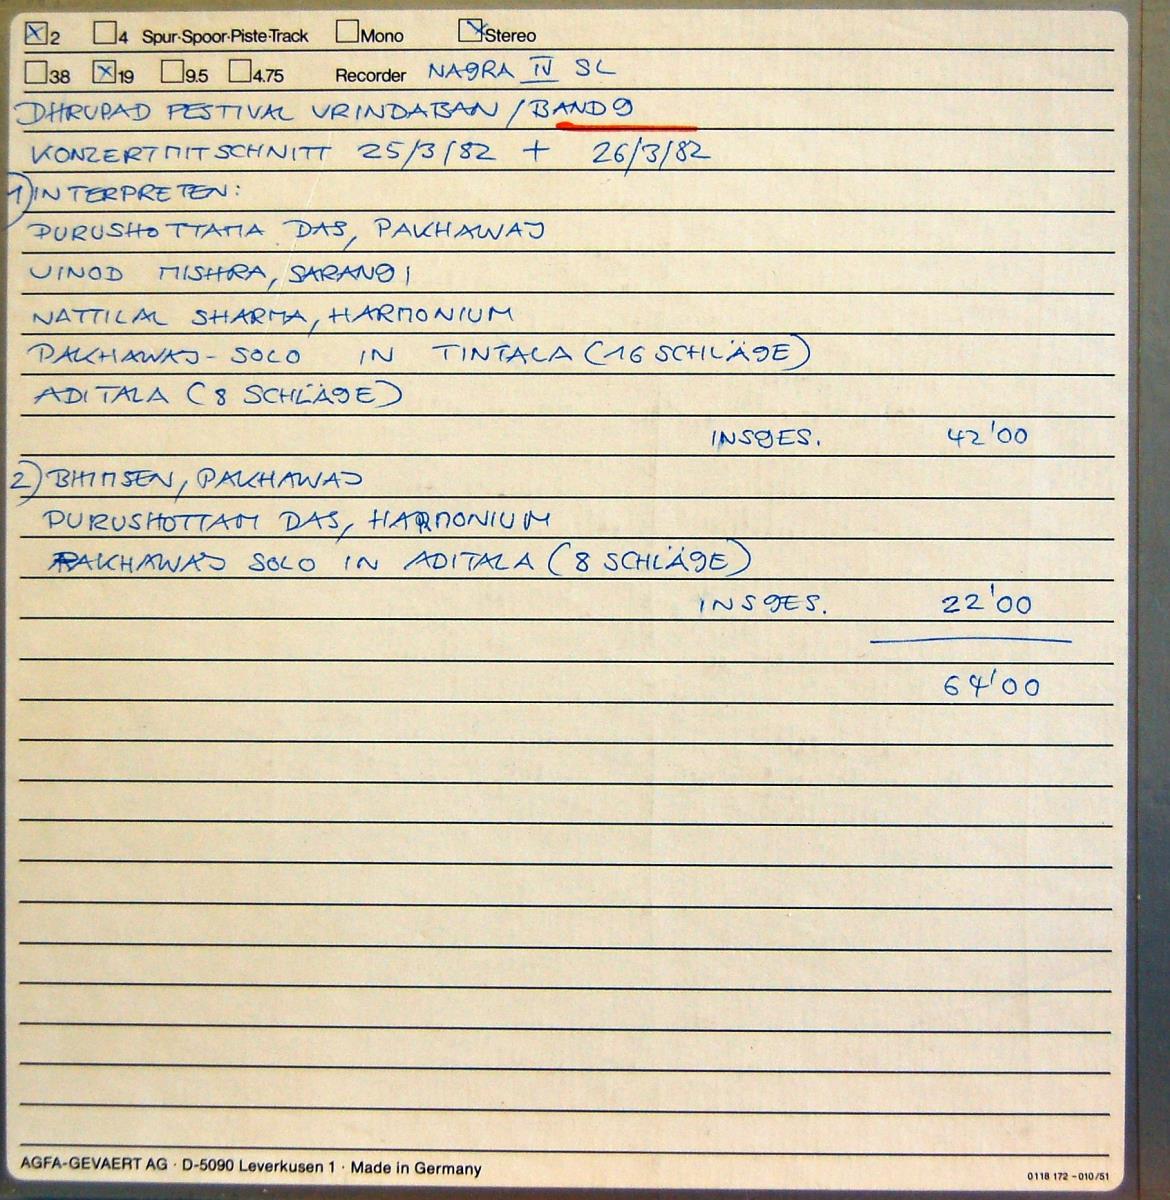 ☒2 ☐4 Spur·Spoor·Piste·Track ☐Mono ☒Stereo
☐38 ☒19 ☐9.5 ☐4.75 Recorder NAGRA IV SL
DHRUPAD FESTIVAL VRINDABAN / BAND 9
KONZERTMITSCHNITT 25/3/82 + 26/3/82
1) INTERPRETEN:
PURUSHOTTAMA DAS, PAKHAWAJ
VINOD MISHRA, SARANGI
NATTILAL SHARMA, HARMONIUM
PAKHAWAJ-SOLO IN TINTALA (16 SCHLÄGE)
ADITALA (8 SCHLÄGE)
INSGES. 42'00
2) BHIMSEN, PAKHAWAJ
PURUSHOTTAM DAS, HARMONIUM
PAKHAWAJ SOLO IN ADITALA (8 SCHLÄGE)
INSGES. 22'00
64'00
AGFA-GEVAERT AG · D-5090 Leverkusen 1 · Made in Germany
0118 172 - 010/51